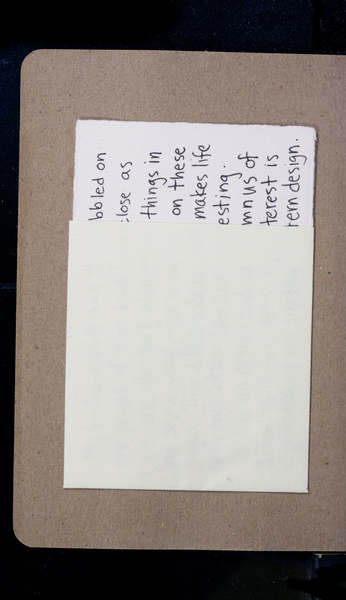 bbled on
close as
things in
on these
makes life
esting.
mnus of
terest is
tern design.